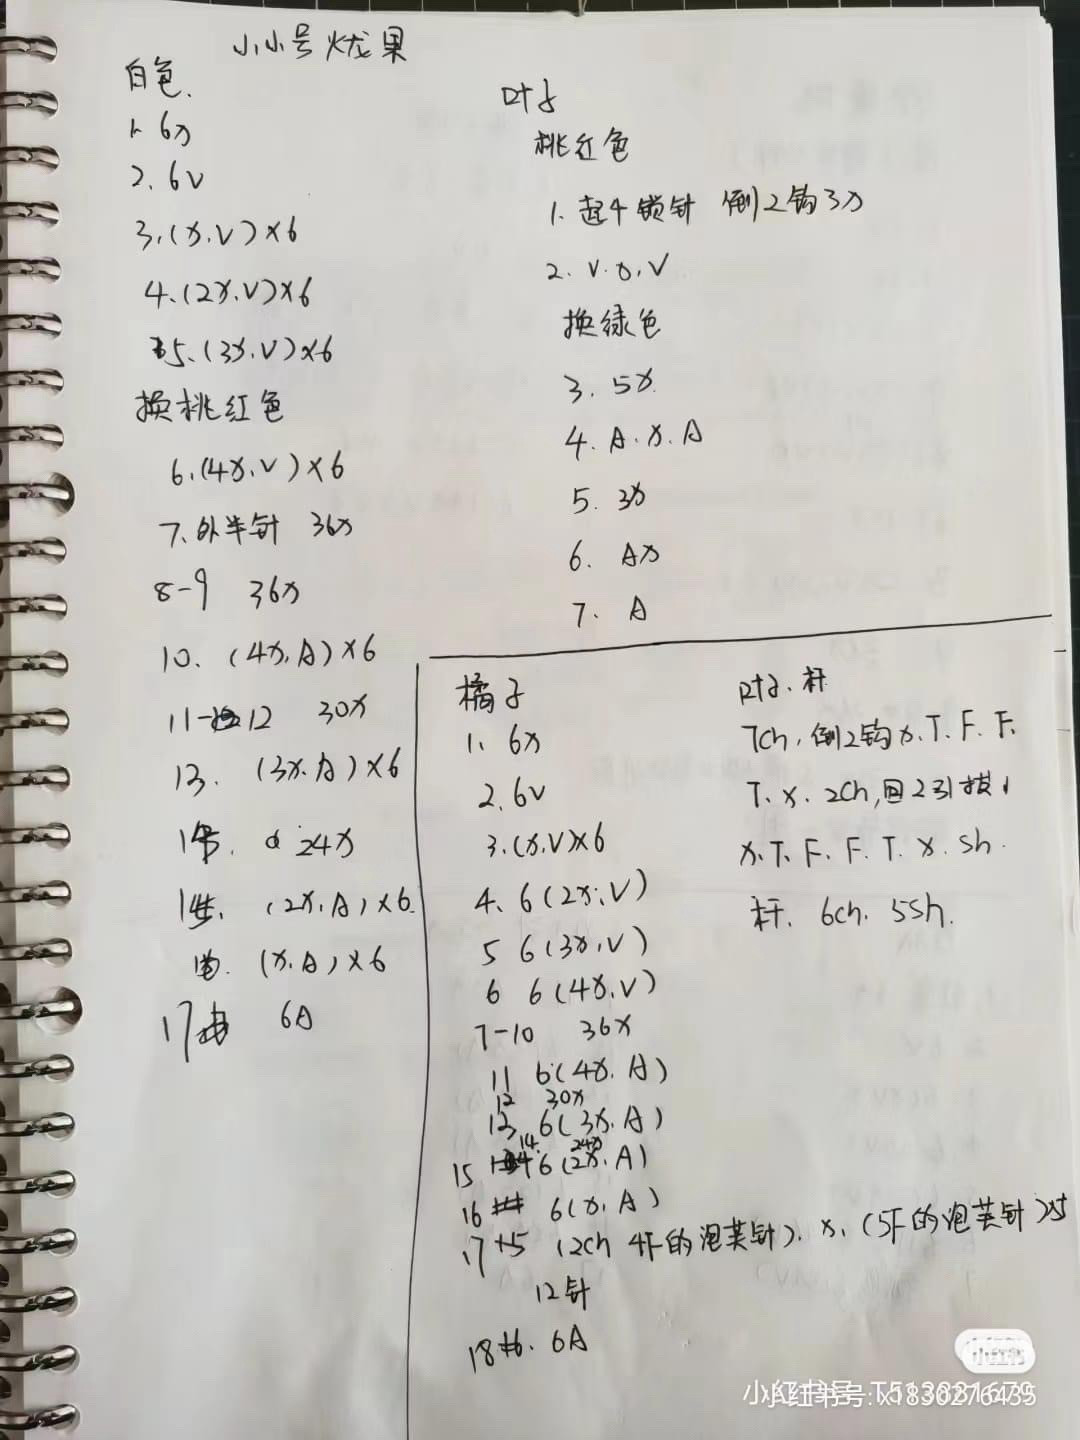 小小号火龙果
白色.
1. 6x
2. 6v
3.(x.v)×6
4.(2x.v)×6
5.(3x.v)×6
换桃红色
6.(4x.v)×6
7.外半针 36x
8-9 36x
10. (4x.A)×6
11-12 30x
13. (3x.A)×6
24x
(2x.A)×6.
(x.A)×6
17 6A
叶子
桃红色
1. 起4锁针 倒2钩3x
2. v.x.v
换绿色
3. 5x.
4. A.x.A
5. 3x
6. Ax
7. A
橘子
1. 6x
2.6v
3.(x.v)×6
4. 6(2x.v)
5 6(3x.v)
6 6(4x.v)
7-10 36x
11 6(4x.A)
12 30x
13 6(3x.A)
14. 24x
15 6(2x.A)
16 6(x.A)
17 (2ch 4F的泡芙针). x. (5F的泡芙针)×5
12针
18 6A
叶子.杆
7ch,倒2钩x.T.F.F.
T.x.2ch,回2引拔1
x.T.F.F.T.x.sh.
杆. 6ch. 5sh.
小红书
小红书号:x1830276435